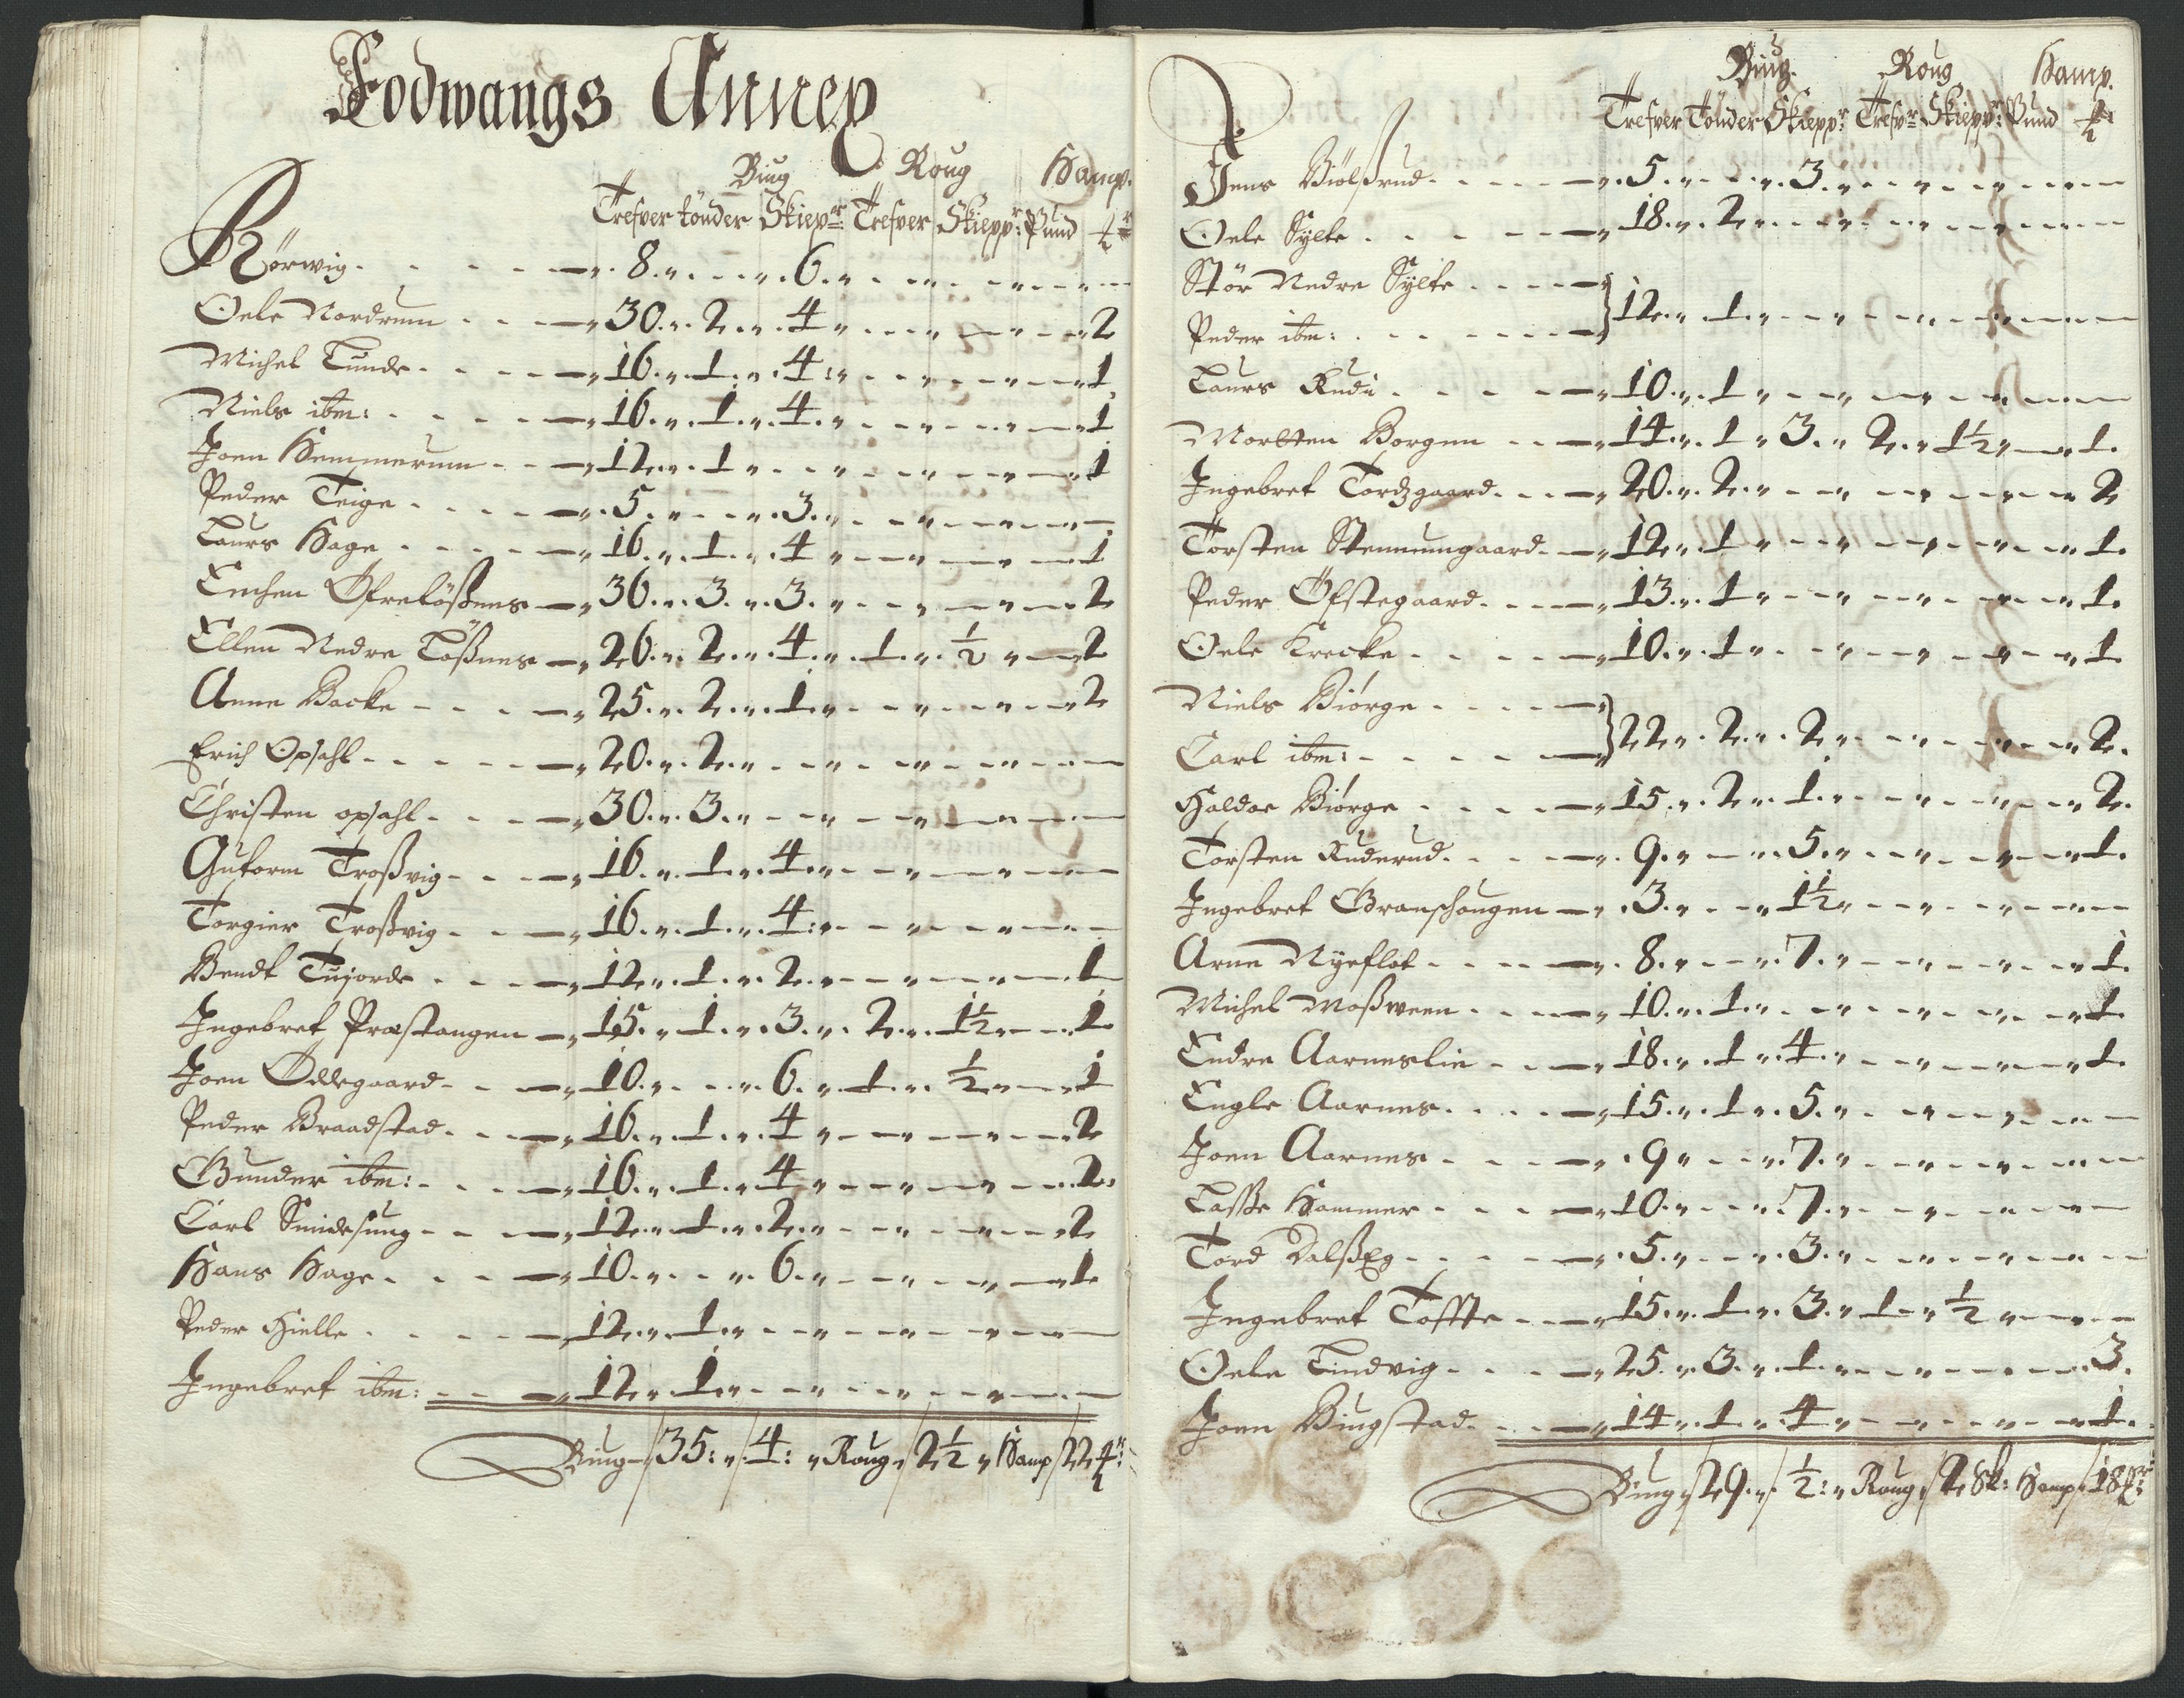 Fodwangs Annex
Biug Roug Hamp.
Trefver tönder Skiepr: Trefver Skieppr: Pund
Rörwig 8 6
Oele Nordrum 30 2 4 2
Michel Lunde 16 1 4 1
Niels ibm: 16 1 4 1
Joen Hemmerum 12 1 1
Peder Teige 5 3
Laurs Hage 16 1 4 1
Emben Öfrelößnes 36 3 3 2
Ellen Nedre Lößnes 26 2 4 1 ½ 2
Anne Backe 25 2 1 2
Erich Opsahl 20 2
Christen opsahl 30 3
Gutorm Troßvig 16 1 4
Torgier Troßvig 16 1 4
Bendt Tujorde 12 1 2 1
Ingebret Præstangen 15 1 3 2 1½ 1
Joen Ödegaard 10 6 1 ½ 1
Peder Braadstad 16 1 4 2
Gunder ibm: 16 1 4 2
Carl Smidesung 12 1 2 2
Hans Hage 10 6 1
Peder Hielle 12 1
Ingebret ibm: 12 1
Biug 35: 4: Roug 2½ Hamp 22
Biug Roug Hamp.
Trefver Tönder Skiepp: Trefr Skiepp: Pund
Jens Biölsrud 5 3
Oele Sylte 18 2
Stör Nedre Sylte
Peder ibm: 12 1
Laurs Rudi 10 1
Mortten Borgen 14 1 3 2 1½ 1
Ingebret Tordzgaard 20 2 2
Torsten Stennumgaard 12 1 1
Peder Öfstegaard 13 1 1
Oele Krecke 10 1 1
Niels Biörge
Carl ibm: 22 2 2 2
Haldor Biörge 15 2 1 2
Torsten Ruderud 9 5 1
Ingebret Granshougen 3 1½
Arne Nyeflot 8 7 1
Michel Moßween 10 1 1
Endre Aarneslie 18 1 4 1
Engle Aarnes 15 1 5
Joen Aarnes 9 7
Laße Hammer 10 7
Tord Dalßeg 5 3
Ingebret Toffte 15 1 3 1 ½
Oele Lindvig 25 3 1 3
Joen Bingstad 14 1 4 1
Biug 29 ½: Roug 2 Sk: Hamp 18